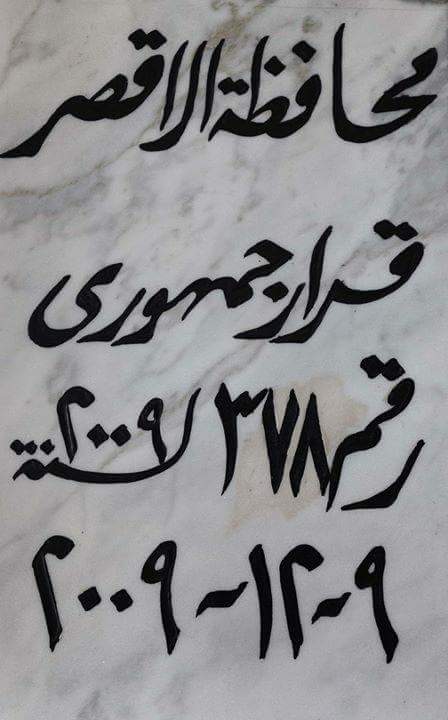 محافظة الاقصر
قرار جمهورى
رقم ٣٧٨ لسنة ٢٠٠٩
٩-١٢-٢٠٠٩